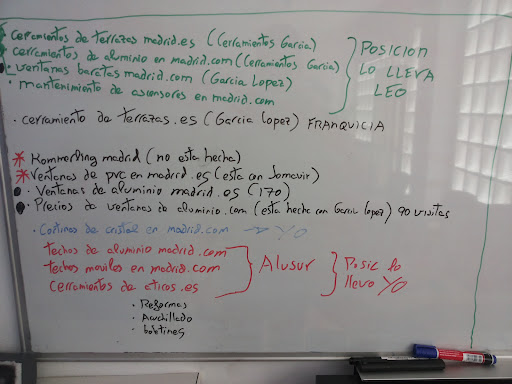 Cerramientos de terrazas madrid.es (Cerramientos Garcia)
cerramientos de aluminio en madrid.com (Ceramientos Garcia)
- ventanas baratas madrid.com (Garcia Lopez)
· mantenimiento de ascensores en madrid.com
POSICION
LO LLEVA
LEO
· cerramiento de terrazas.es (Garcia Lopez) FRANQUICIA
* Kommerling madrid (no esta hecha)
* Ventanas de pvc en madrid.es (esta con Somavir)
· Ventanas de aluminio madrid.es (170)
· Precios de ventanas de aluminio.com (esta hecha con Garcia Lopez) 90 visitas
· Cortinas de cristal en madrid.com → YO
techos de aluminio madrid.com
techos moviles en madrid.com
cerramientos de aticos.es
Alusur
Posic lo
llevo YO
· Reformas
· Acuchillado
· boletines